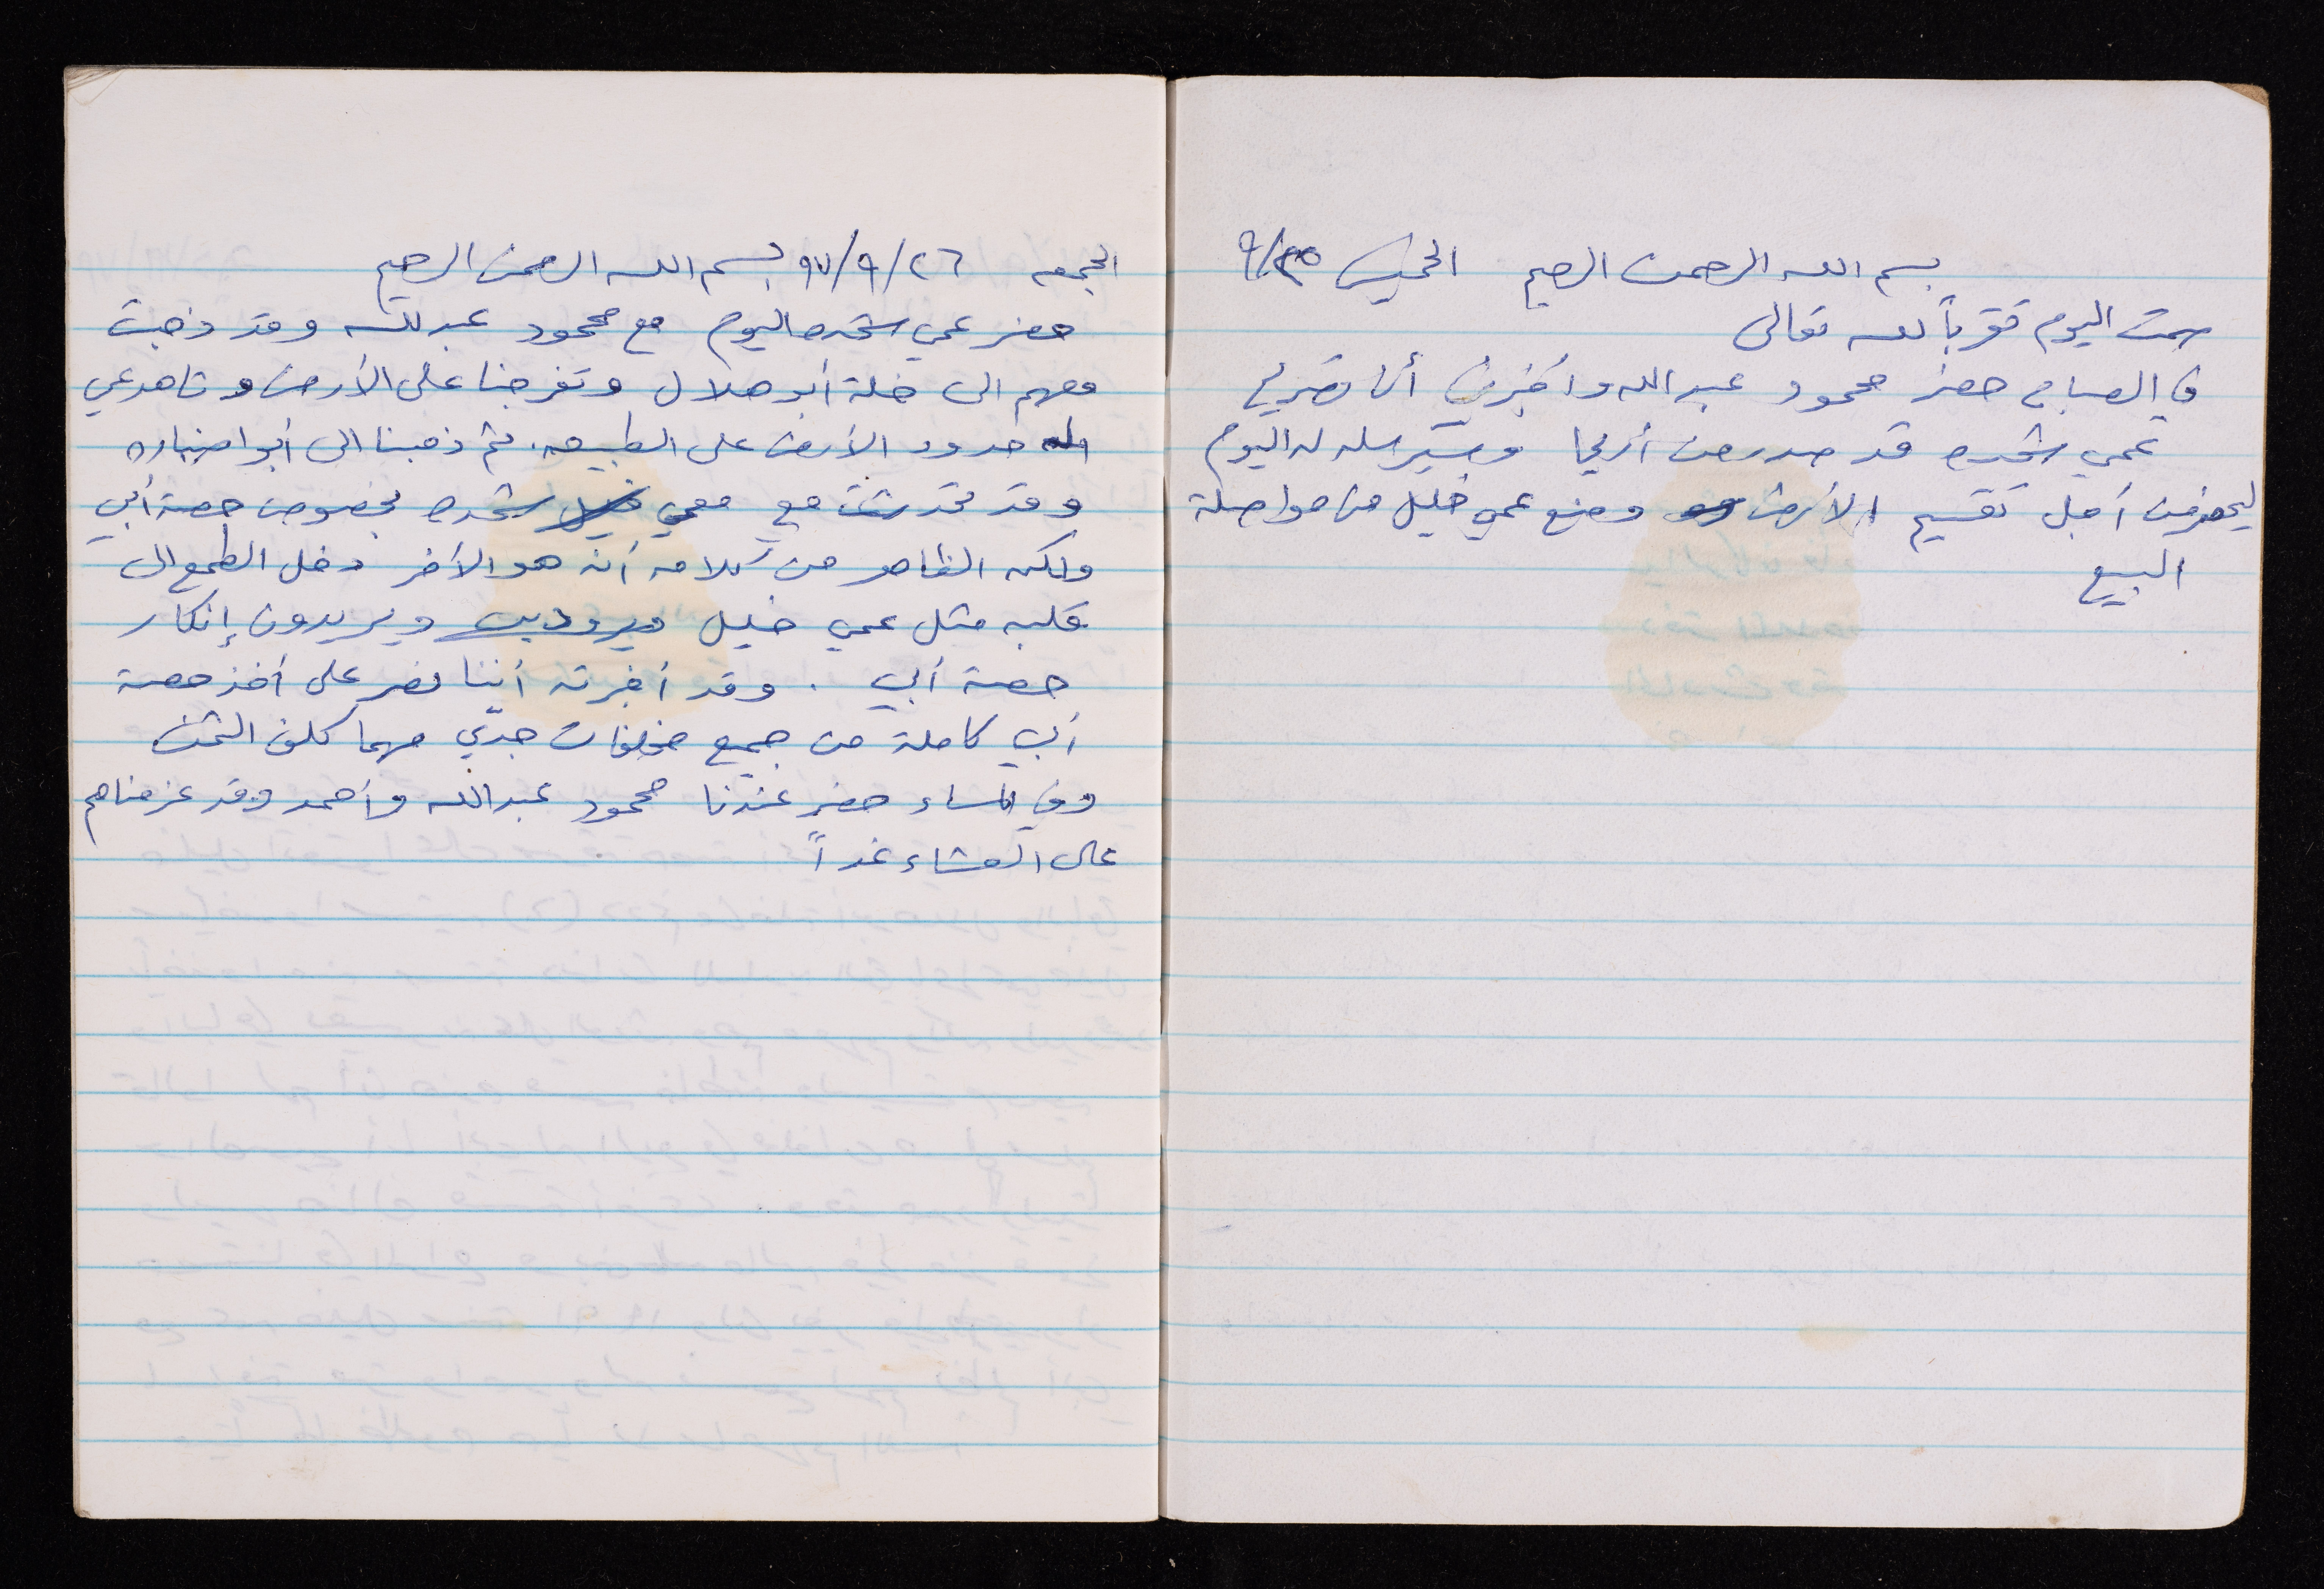 بسم الله الرحمن الرحيم الخميس ٩/٢٥
صمت اليوم تقرباً لله تعالى
في الصباح حضر محمود عبد الله وأخبرني أن تصريح
عمي شحده قد صدر من أريحا وسيرسله له اليوم
ليحضر من أجل تقسيم الأرض ومنع عمي خليل من مواصلة
البيع
الجمعه ٩٧/٩/٢٦ بسم الله الرحمن الرحيم
حضر عمي شحده اليوم مع محمود عبد الله وقد ذهبت
معهم الى خلة أبو هلال وتفرجنا على الأرض وشاهد عمي
حدود الأرض على الطبيعه. ثم ذهبنا الى أبو
وقد تحدثت مع عمي شحده بخصوص حصة أبي
ولكن الظاهر من كلامه أنه هو الأخر دخل الطمع الى
قلبه مثل عمي خليل ويريدون إنكار
حصة أبي . وقد أخبرته أننا نصر على أخذ حصة
أبي كاملة من جميع مخلفات جدّي مهما كلف الثمن
وفي المساء حضر عندنا محمود عبدالله وأحمد وقد عزمناهم
على العشاء غداً